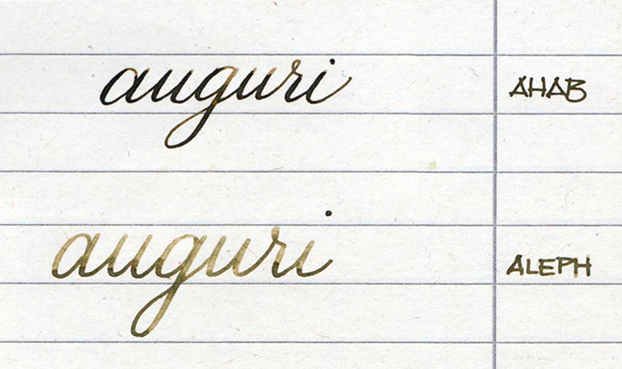 auguri AHAB
auguri ALEPH